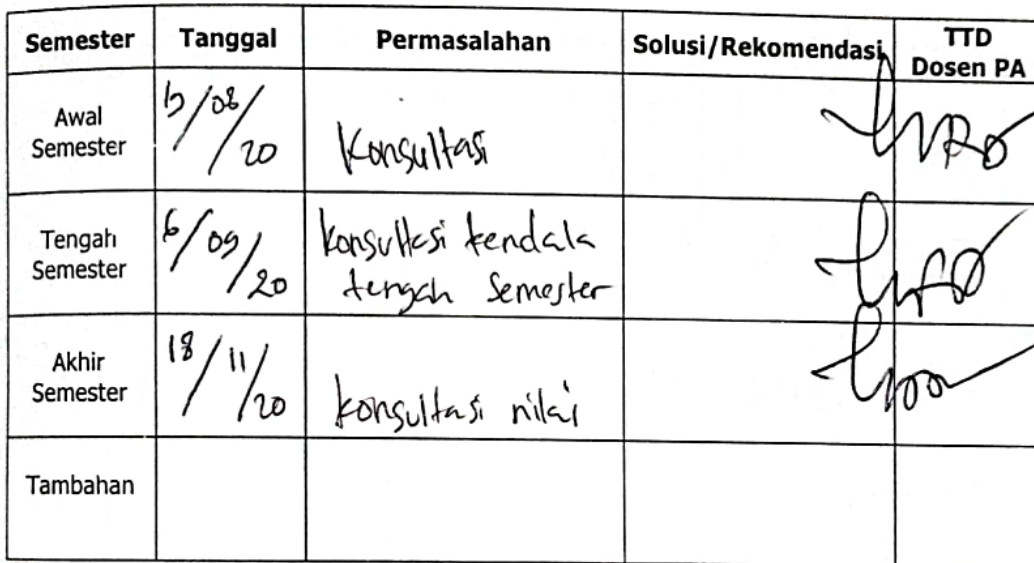 Semester Tanggal Permasalahan Solusi/Rekomendasi TTD
Dosen PA
Awal
Semester
/08/20
Konsultasi
Tengah
Semester
6/09/20
konsultasi kendala
tengah Semester
Akhir
Semester
18/11/20
konsultasi nilai
Tambahan